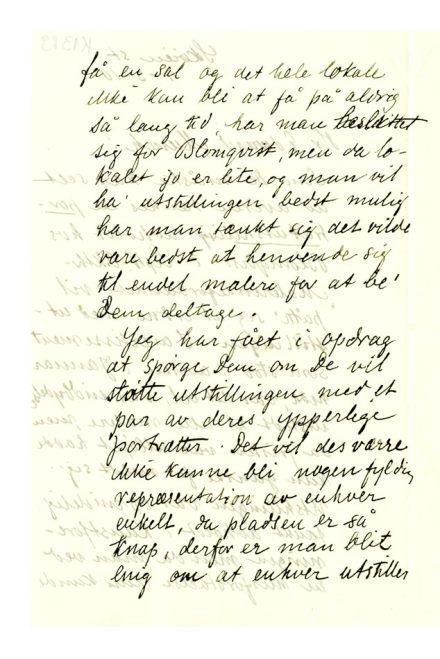 få en sal og det hele lokale
ikke kan bli at få på aldrig
så lang tid har man besluttet
sig for Blomqvist, men da lo-
kalet jo er lite, og man vil
ha' utstillingen bedst mulig
har man tænkt sig det vilde
være bedst at henvende sig
til endel malere for at be'
Dem deltage.
Jeg har fået i opdrag
at spørge Dem om De vil
støtte utstillingen med et
par av deres ypperlige
portrætter. Det vil desværre
ikke kunne bli nogen fyldig
repræsentation av enhver
enkelt, da pladsen er så
knap, derfor er man blit
enig om at enhver utstiller